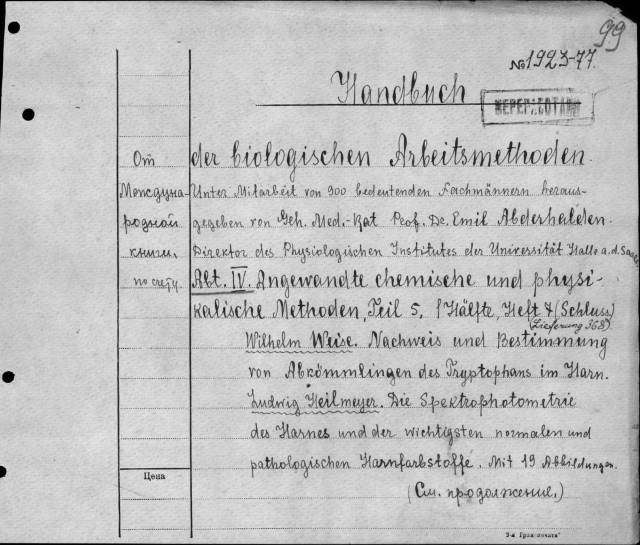 99
№1923-77.
Handbuch
ПЕРЕРАБОТАНО
От
Междуна-
родной
книги,
по счету.
der biologischen Arbeitsmethoden.
Unter Mitarbeit von 900 bedeutenden Fachmännern heraus-
gegeben von Geh. Med.-Rat Prof. Dr. Emil Abderhalden.
Direktor des Physiologischen Institutes der Universität Halle a.d. Saale
Abt. IV. Angewandte chemische und physi-
kalische Methoden, Teil 5, 1 Hälfte, Heft 4 (Schluss)
(Lieferung 368)
Wilhelm Weise. Nachweis und Bestimmung
von Abkömmlingen des Tryptophans im Harn.
Ludwig Heilmeyer. Die Spektrophotometrie
des Harnes und der wichtigsten normalen und
pathologischen Harnfarbstoffe. Mit 19 Abbildungen.
Цена
(См. продолжение.)